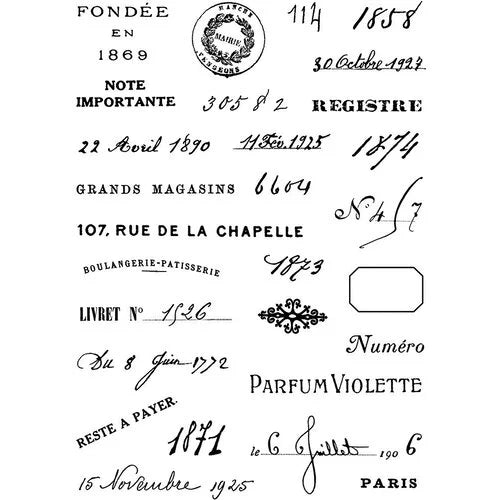 FONDÉE
EN
1869
MANCHE
MAIRIE
114
1858
30 Octobre 1927
NOTE
IMPORTANTE
30582
REGISTRE
22 Avril 1890
11 Fév. 1925
1874
GRANDS MAGASINS
6604
Nº 4/7
107, RUE DE LA CHAPELLE
BOULANGERIE-PATISSERIE
1873
LIVRET Nº 1526
Numéro
Du 8 Juin 1772
PARFUM VIOLETTE
RESTE A PAYER.
1871
le 6 Juillet 1906
15 Novembre 1925
PARIS